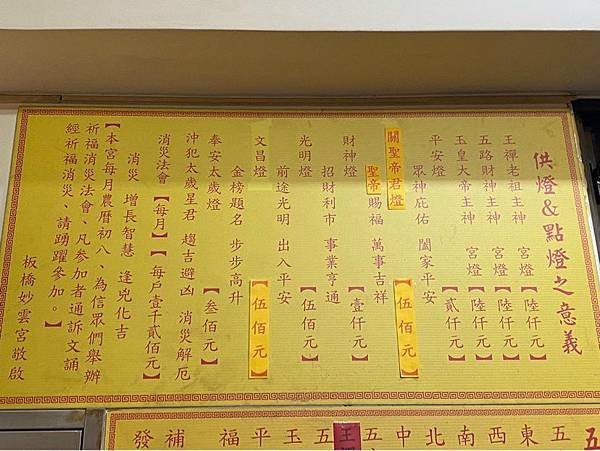 供燈&點燈之意義
王禪老祖主神 宮燈【陸仟元】
五路財神主神 宮燈【陸仟元】
玉皇大帝主神 宮燈【陸仟元】
平安燈【貳仟元】
眾神庇佑 闔家平安
關聖帝君燈【伍佰元】
聖帝賜福 萬事吉祥
財神燈【壹仟元】
招財利市 事業亨通
光明燈【伍佰元】
前途光明 出入平安
文昌燈【伍佰元】
金榜題名 步步高升
奉安太歲燈【叁佰元】
沖犯太歲星君 趨吉避凶 消災解厄
消災法會【每月】【每戶壹仟貳佰元】
消災 增長智慧 逢兇化吉
【本宮每月農曆初八、為信眾們舉辦
祈福消災法會、凡參加者通訴文誦
經祈福消災、請踴躍參加。】
板橋妙雲宮敬啟
五東西南北中五
五玉平福
補發